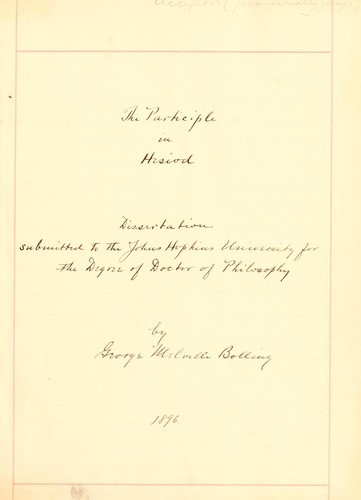 Accepted (provisionally)
The Participle
in
Hesiod
Dissertation
submitted to the Johns Hopkins University for
the Degree of Doctor of Philosophy
by
George Melville Bolling
1896